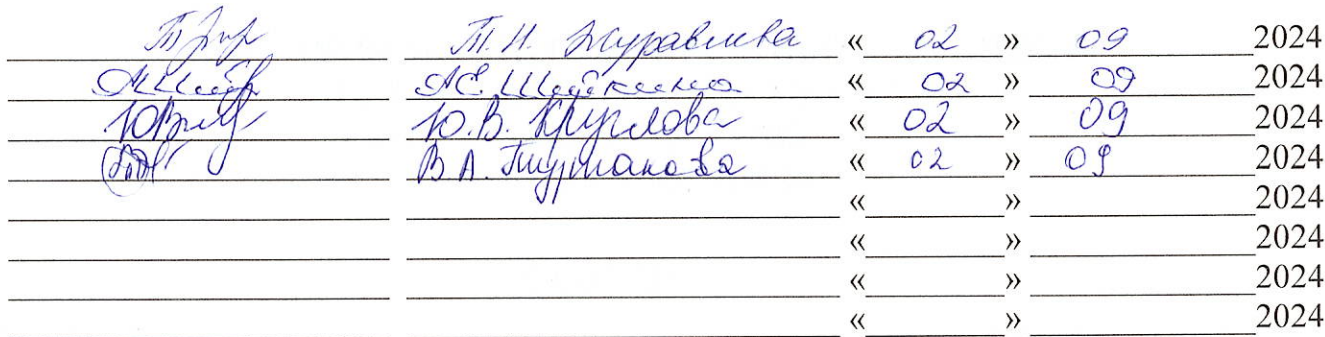 Т.Н. Журавлева « 02 » 09 2024
А.Е. Шейкина « 02 » 09 2024
Ю.В. Круглова « 02 » 09 2024
В.А. « 02 » 09 2024
« » 2024
« » 2024
« » 2024
« » 2024